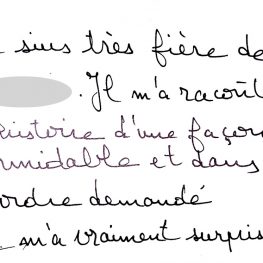 suis très fière de
. Il m'a racont
histoire d'une façon
rmidable et dans
ordre demandé
m'a vraiment surpris